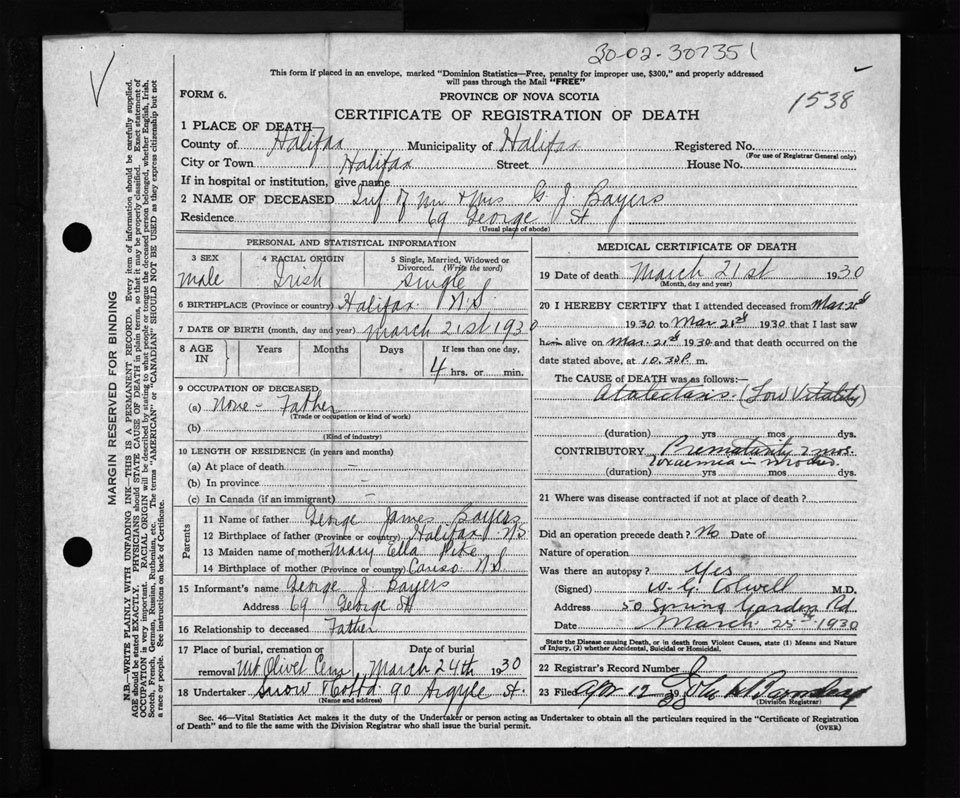 30-02-307351
This form if placed in an envelope, marked "Dominion Statistics—Free, penalty for improper use, $300," and properly addressed
will pass through the Mail "FREE"
FORM 6.
PROVINCE OF NOVA SCOTIA
1538
CERTIFICATE OF REGISTRATION OF DEATH
1 PLACE OF DEATH
County of Halifax Municipality of Halifax Registered No.
(For use of Registrar General only)
City or Town Halifax Street House No.
If in hospital or institution, give name
2 NAME OF DECEASED Inf of Mr & Mrs G. J. Bayers
Residence 69 George St
(Usual place of abode)
PERSONAL AND STATISTICAL INFORMATION
3 SEX 4 RACIAL ORIGIN 5 Single, Married, Widowed or
Divorced. (Write the word)
male Irish Single
6 BIRTHPLACE (Province or country) Halifax N.S.
7 DATE OF BIRTH (month, day and year) March 21st 1930
8 AGE IN Years Months Days If less than one day,
4 hrs. or min.
9 OCCUPATION OF DECEASED
(a) None - Father
(Trade or occupation or kind of work)
(b)
(Kind of industry)
10 LENGTH OF RESIDENCE (in years and months)
(a) At place of death —
(b) In province —
(c) In Canada (if an immigrant) —
Parents
11 Name of father George James Bayers
12 Birthplace of father (Province or country) Halifax N.S
13 Maiden name of mother Mary Ella Pike
14 Birthplace of mother (Province or country) Canso N.S
15 Informant's name George J Bayers
Address 69 George St
16 Relationship to deceased Father
17 Place of burial, cremation or Date of burial
removal Mt Olivet Cem March 24th 1930
18 Undertaker Snow & Co Ltd 90 Argyle St.
(Name and address)
MEDICAL CERTIFICATE OF DEATH
19 Date of death March 21st 1930
(Month, day and year)
20 I HEREBY CERTIFY that I attended deceased from Mar 21st
1930 to Mar 21st 1930 that I last saw
him alive on Mar. 21st 1930 and that death occurred on the
date stated above, at 10.30P. m.
The CAUSE OF DEATH was as follows:—
Atalectasis. (Low Vitality)
(duration) yrs mos. dys.
CONTRIBUTORY Prematurity 2 mos.
Toxaemia in Mother.
(duration) yrs mos. dys.
21 Where was disease contracted if not at place of death?
Did an operation precede death? No Date of
Nature of operation
Was there an autopsy? Yes
(Signed) W. G. Colwell M.D.
Address 50 Spring Garden Rd
Date March 25th 1930
State the Disease causing Death, or in death from Violent Causes, state (1) Means and Nature
of Injury, (2) whether Accidental, Suicidal or Homicidal.
22 Registrar's Record Number
23 Filed Apr 12 19
(Division Registrar)
Sec. 46—Vital Statistics Act makes it the duty of the Undertaker or person acting as Undertaker to obtain all the particulars required in the "Certificate of Registration
of Death" and to file the same with the Division Registrar who shall issue the burial permit.
(OVER)
MARGIN RESERVED FOR BINDING
N.B.—WRITE PLAINLY WITH UNFADING INK—THIS IS A PERMANENT RECORD. Every item of information should be carefully supplied.
AGE should be stated EXACTLY. PHYSICIANS should STATE CAUSE OF DEATH in plain terms, so that it may be properly classified. Exact statement of
OCCUPATION is very important. RACIAL ORIGIN will be described by stating to what people or tongue the deceased person belonged, whether English, Irish,
Scotch, French, German, Russian, Ruthenian, etc. The terms "AMERICAN" or "CANADIAN" SHOULD NOT BE USED as they express citizenship but not
a race or people. See instructions on back of Certificate.